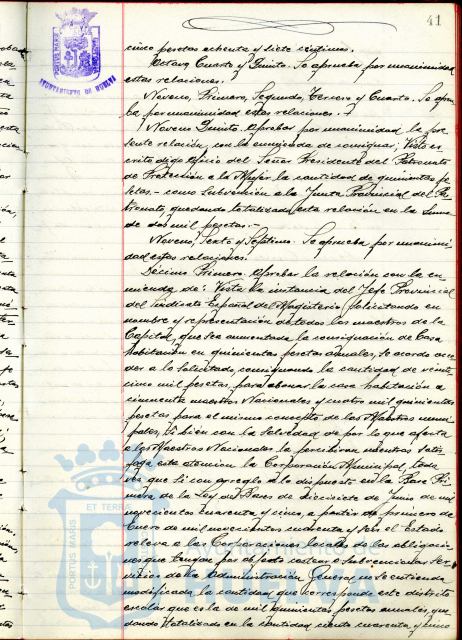 41
AYUNTAMIENTO DE HUELVA
cinco pesetas ochenta y siete centimos.
Octavo, Cuarto y Quinto. Se aprueba por unanimidad
estas relaciones.
Noveno, Primero, Segundo, Tercero y Cuarto. Se aprue
ba por unanimidad estas relaciones.-
Noveno Quinto. Aprobar por unanimidad la pre
sente relación, con la enmienda de consignar, Visto es
crito digo oficio del Señor Presidente del Patronato
de Protección a la Mujer la cantidad de quinientas pe
setas,- como subvención a la Junta Provincial del Pa
tronato, quedando totalizada esta relación en la suma
de dos mil pesetas.-
Noveno, Sexto y Septimo. Se aprueba por unanimi
dad estas relaciones.
Décimo Primero. Aprobar la relación con la en
mienda de: Vista la instancia del Jefe Provincial
del Sindicato Español del Magisterio, solicitando en
nombre y representación de todos los maestros de la
Capital, que sea aumentada la consignación de Casa
habitación en quinientas pesetas anuales, se acordó acce
der a lo solicitado, consignando la cantidad de veinte
cinco mil pesetas, para abonar la casa habitación a
cincuenta maestros Nacionales y cuatro mil quinientas
pesetas para el mismo concepto de los Maestros muni
pales, si bien con la salvedad de por lo que afecta
a los Maestros Nacionales la percibiran mientras satis
faga esta atencion la Corporación Municipal, toda
vez que si con arreglo a lo dispuesto en la Base Pri
mera de la Ley de Bases de diecisiete de Junio de mil
novecientos cuarenta y cinco, a partir de primero de
Enero de mil novecientos cuarenta y seis el Estado
releva a las Corporaciones locales de las obligacio
nes que tengan por objeto costear o subvencionar ser
vicios de la Administración General, se entienda
modificada la cantidad que corresponde este distrito
escolar que es la de mil quinientas pesetas anuales, que
dando totalizada en la cantidad ciento cuarenta y cinco
ET TERRÆ
PORTUS MARIS
Ayuntamiento de